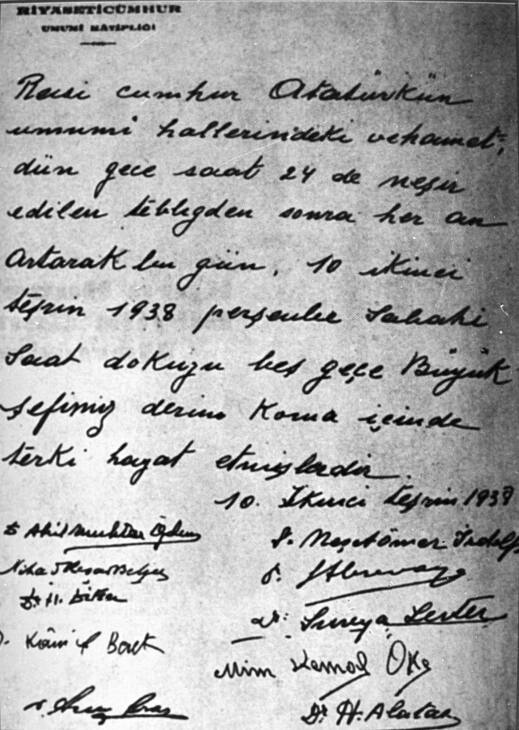 RİYASETİCÜMHUR
UMUMİ KÂTİPLİĞİ
Reisi cumhur Atatürkün
umumi hallerindeki vehamet,
dün gece saat 24 de neşir
edilen tebliğden sonra her an
artarak bu gün, 10 ikinci
teşrin 1938 perşenbe sabahi
Saat dokuzu beş geçe Büyük
şefimiz derin koma içinde
terki hayat etmişlerdir.
10. İkinci teşrin 1938
Dr Akil Muhtar Özden
Dr. Neşet Ömer İrdelp
Nihad Reşad Belger
Dr. H. Diker
Dr. Süreyya Serter
Kâmil Berk
Mim Kemal Öke
Dr. H. Alataş